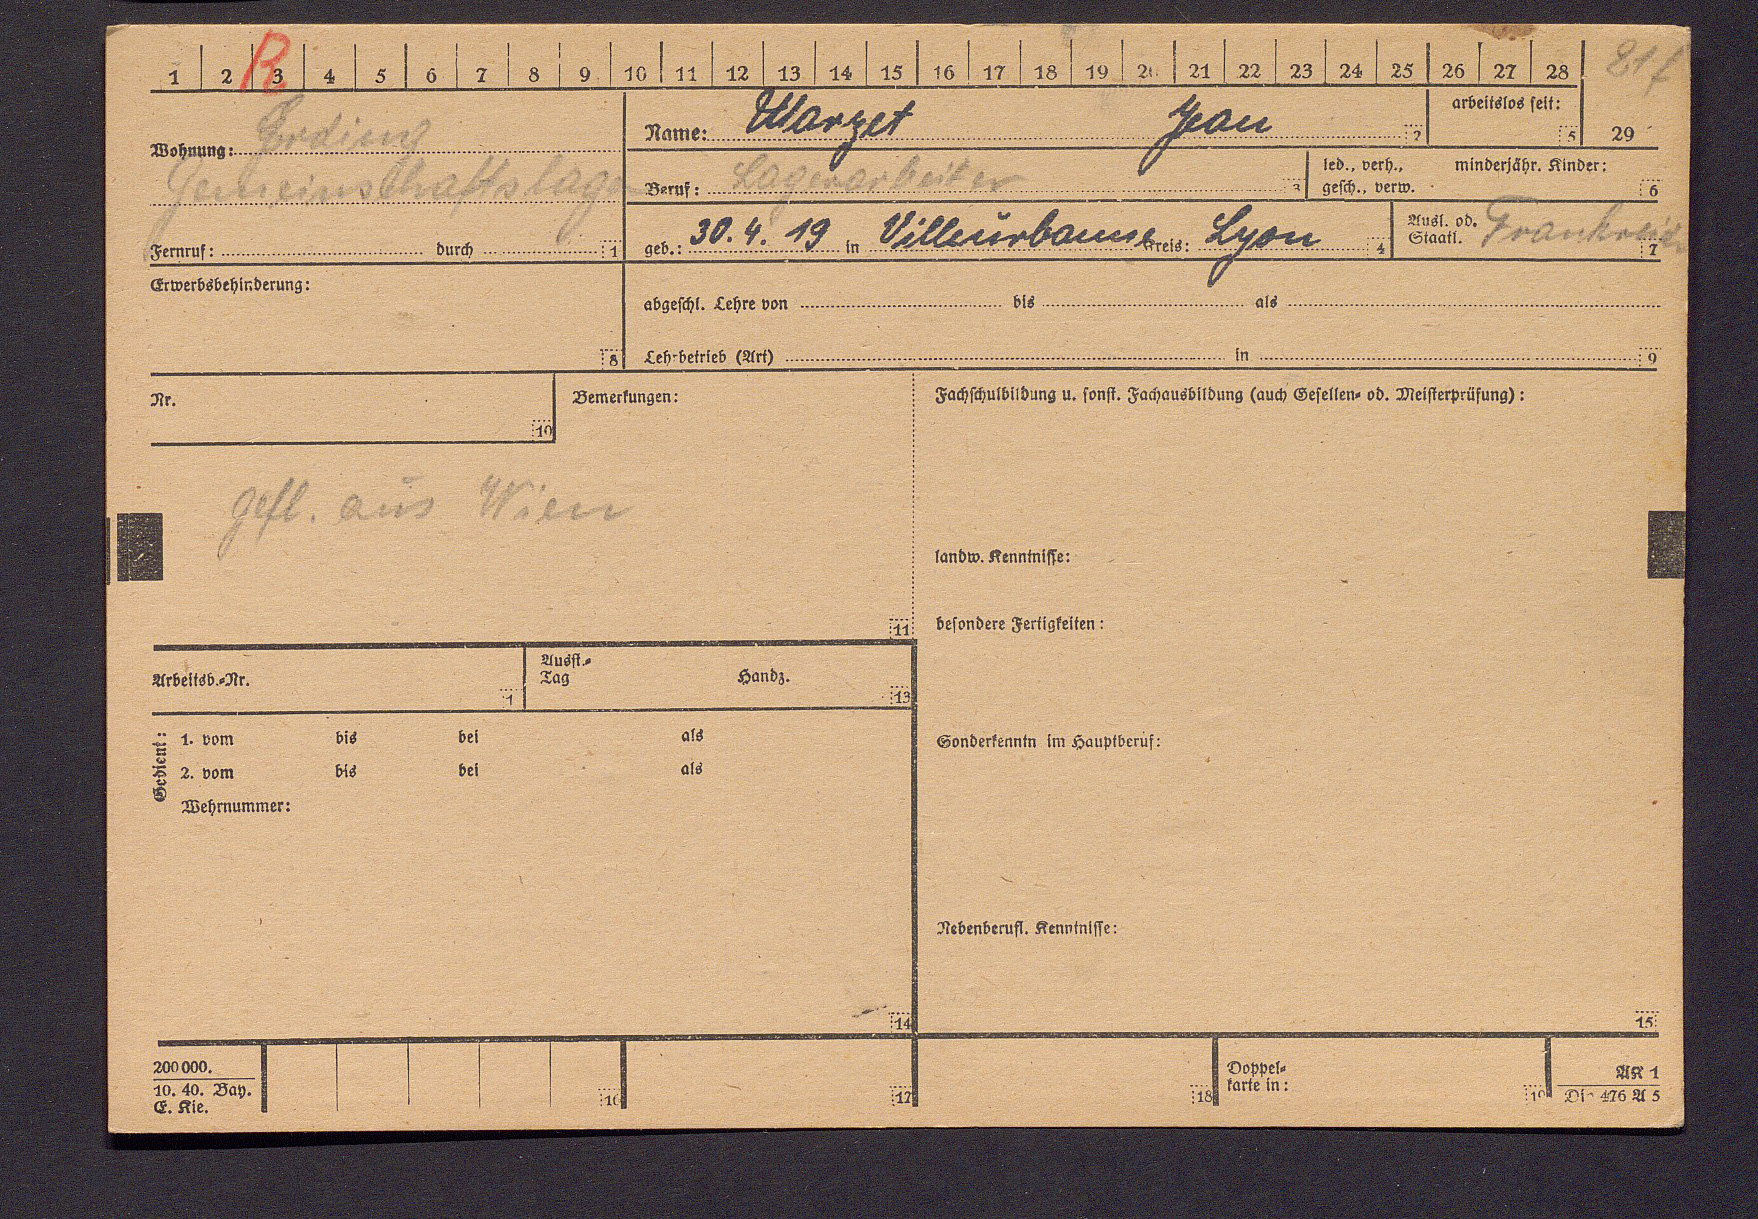 1 2 3 4 5 6 7 8 9 10 11 12 13 14 15 16 17 18 19 20 21 22 23 24 25 26 27 28
R
Name: Marzet Jean 2
arbeitslos seit: 5
29
Wohnung: Erding
Gemeinschaftslager
Beruf: Lagerarbeiter 3
led., verh., minderjähr. Kinder:
gesch., verw. 6
Fernruf: durch 1
geb.: 30. 4. 19 in Villeurbanne Kreis: Lyon 4
Ausl. od.
Staatl. Frankreich 7
Erwerbsbehinderung:
8
abgeschl. Lehre von bis als
Lehrbetrieb (Art) in 9
Nr.
10
Bemerkungen:
gefl. aus Wien
11
Fachschulbildung u. sonst. Fachausbildung (auch Gesellen- od. Meisterprüfung):
landw. Kenntnisse:
besondere Fertigkeiten:
Arbeitsb.-Nr. 1
Ausst.-
Tag Handz. 13
Gedient:
1. vom bis bei als
2. vom bis bei als
Wehrnummer:
14
Sonderkenntn im Hauptberuf:
Nebenberufl. Kenntnisse:
15
200 000.
10. 40. Bay.
E. Kie.
16
17
18
Doppel-
karte in:
19
AK 1
Din 476 A 5